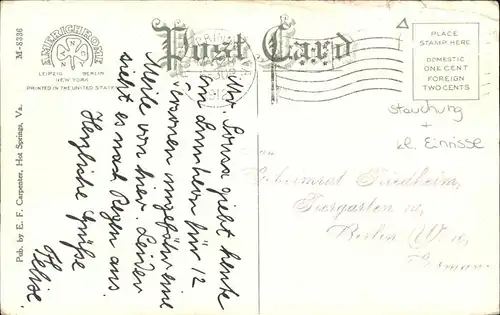 M-8336
AMERICHROME
LEIPZIG BERLIN
NEW YORK
PRINTED IN THE UNITED STATES
Post Card
PLACE
STAMP HERE
DOMESTIC
ONE CENT
FOREIGN
TWO CENTS
Pub. by E. F. Carpenter, Hot Springs, Va.
Mrs. giebt heute
ein Luncheon für 12
Personen ungefähr eine
Meile von hier. Leider
sieht es nach Regen aus.
Herzliche Grüße
Stauchung
+
kl. Einrisse
Geheimrat Friedheim,
Tiergarten
Berlin W. 10,
Germany